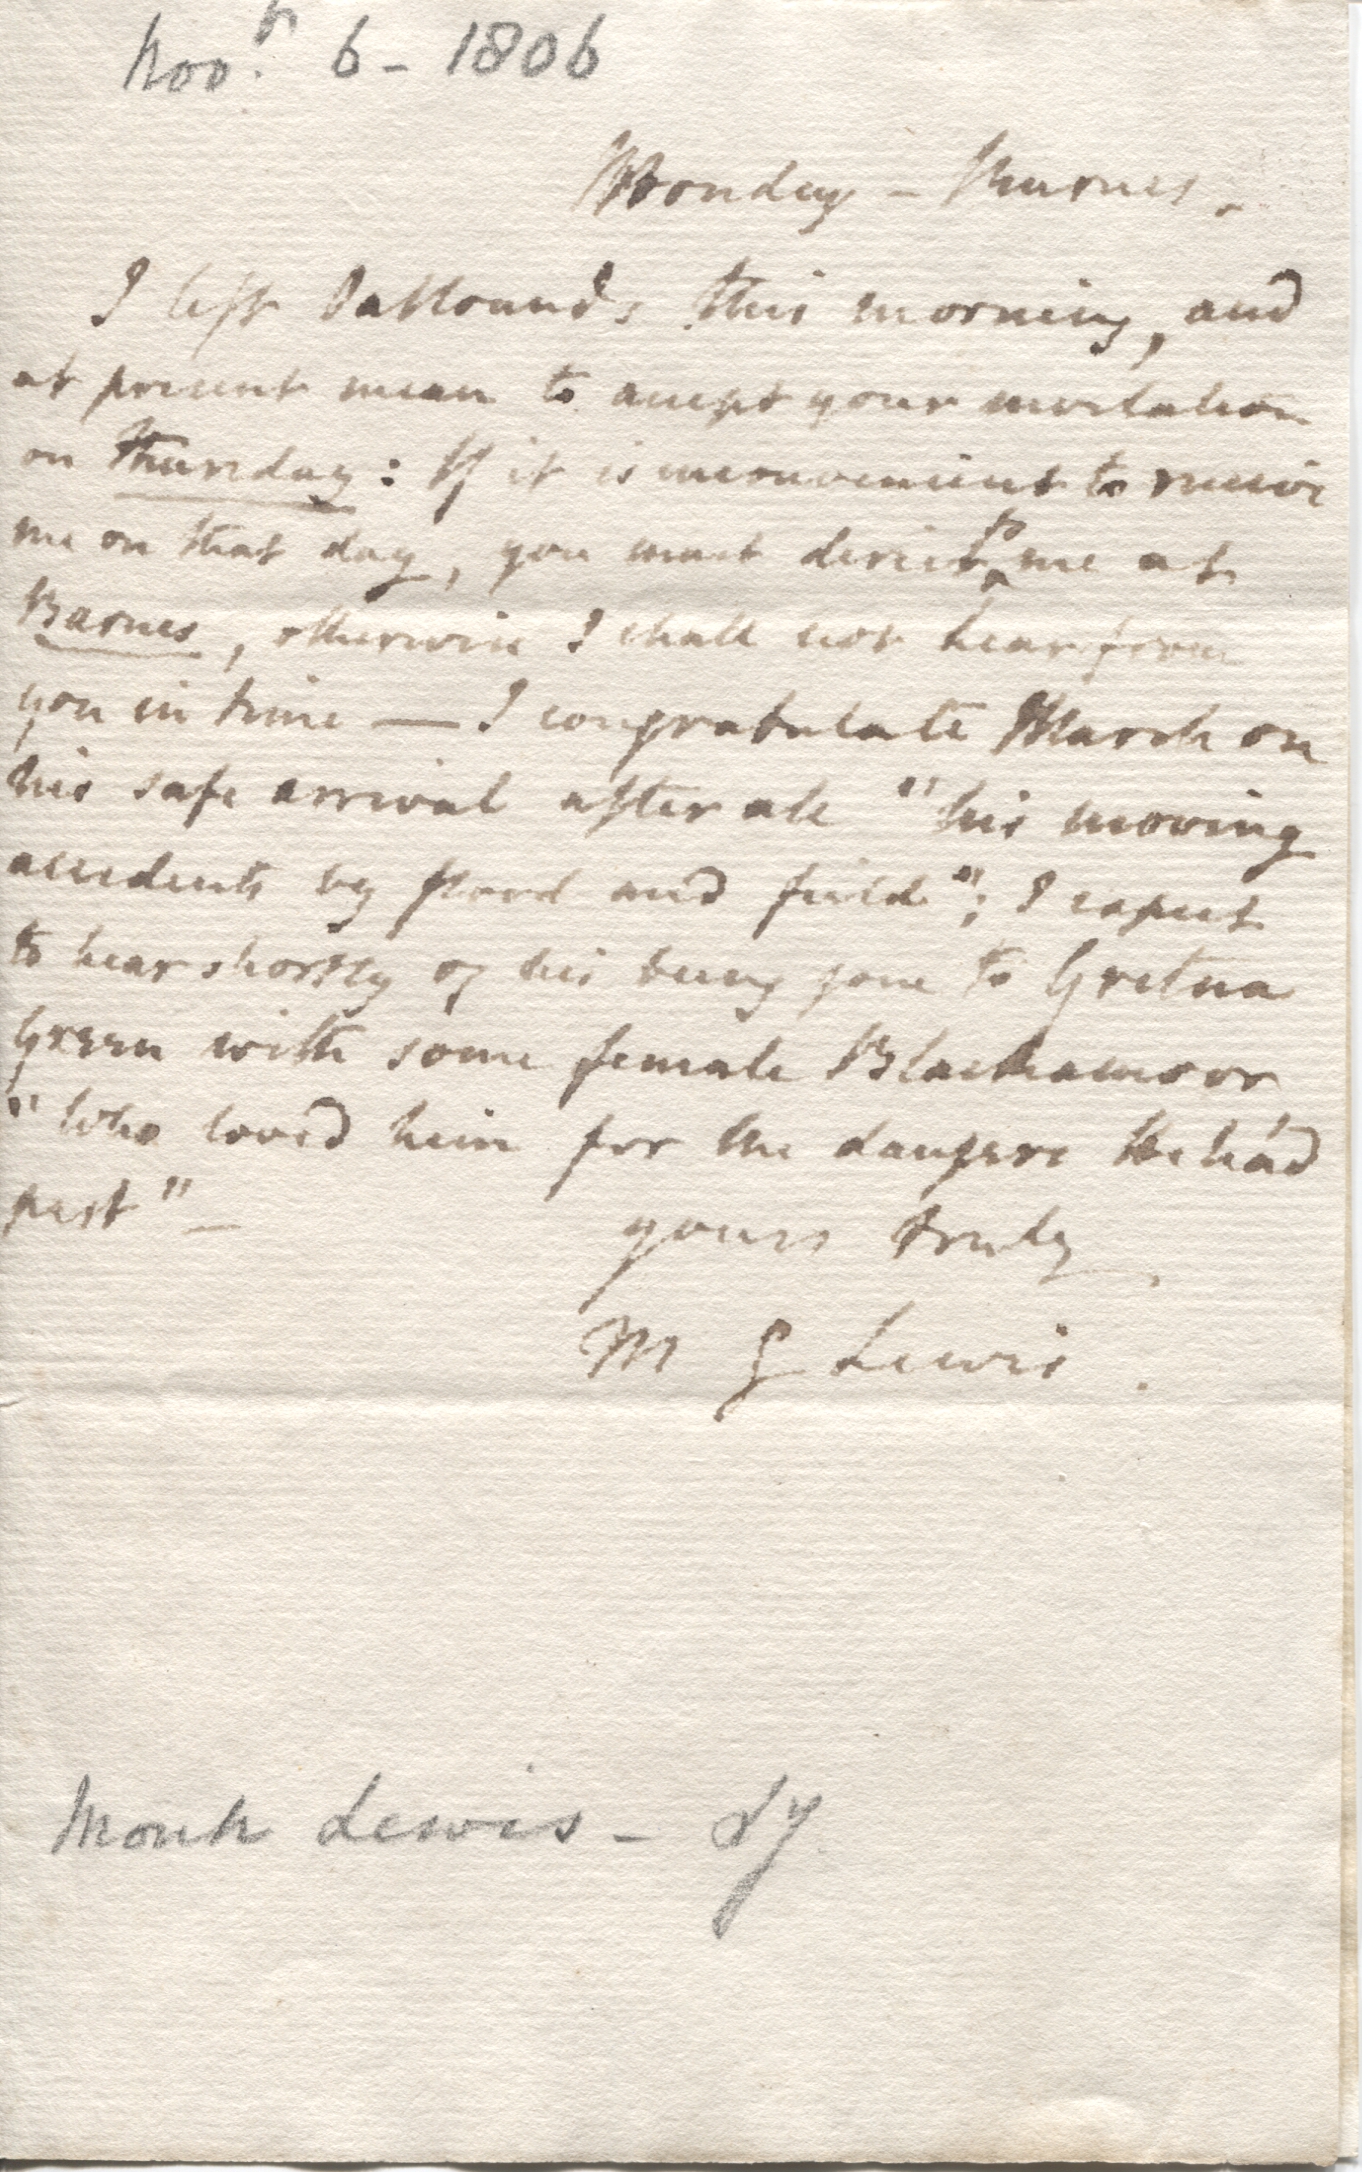 Nov.r 6 - 1806
Monday - Barnes.
I left Oatlands this morning, and
at present mean to accept your invitation
on Thursday: If it is inconvenient to receive
me on that day, you must direct to me at
Barnes, otherwise I shall not hear from
you in time — I congratulate March on
his safe arrival after all "his moving
accidents by flood and field"; I expect
to hear shortly of his being gone to Gretna
Green with some female Blackamoor
"who lov'd him for the dangers He had
past" -
yours truly
M G Lewis.
Monk Lewis -